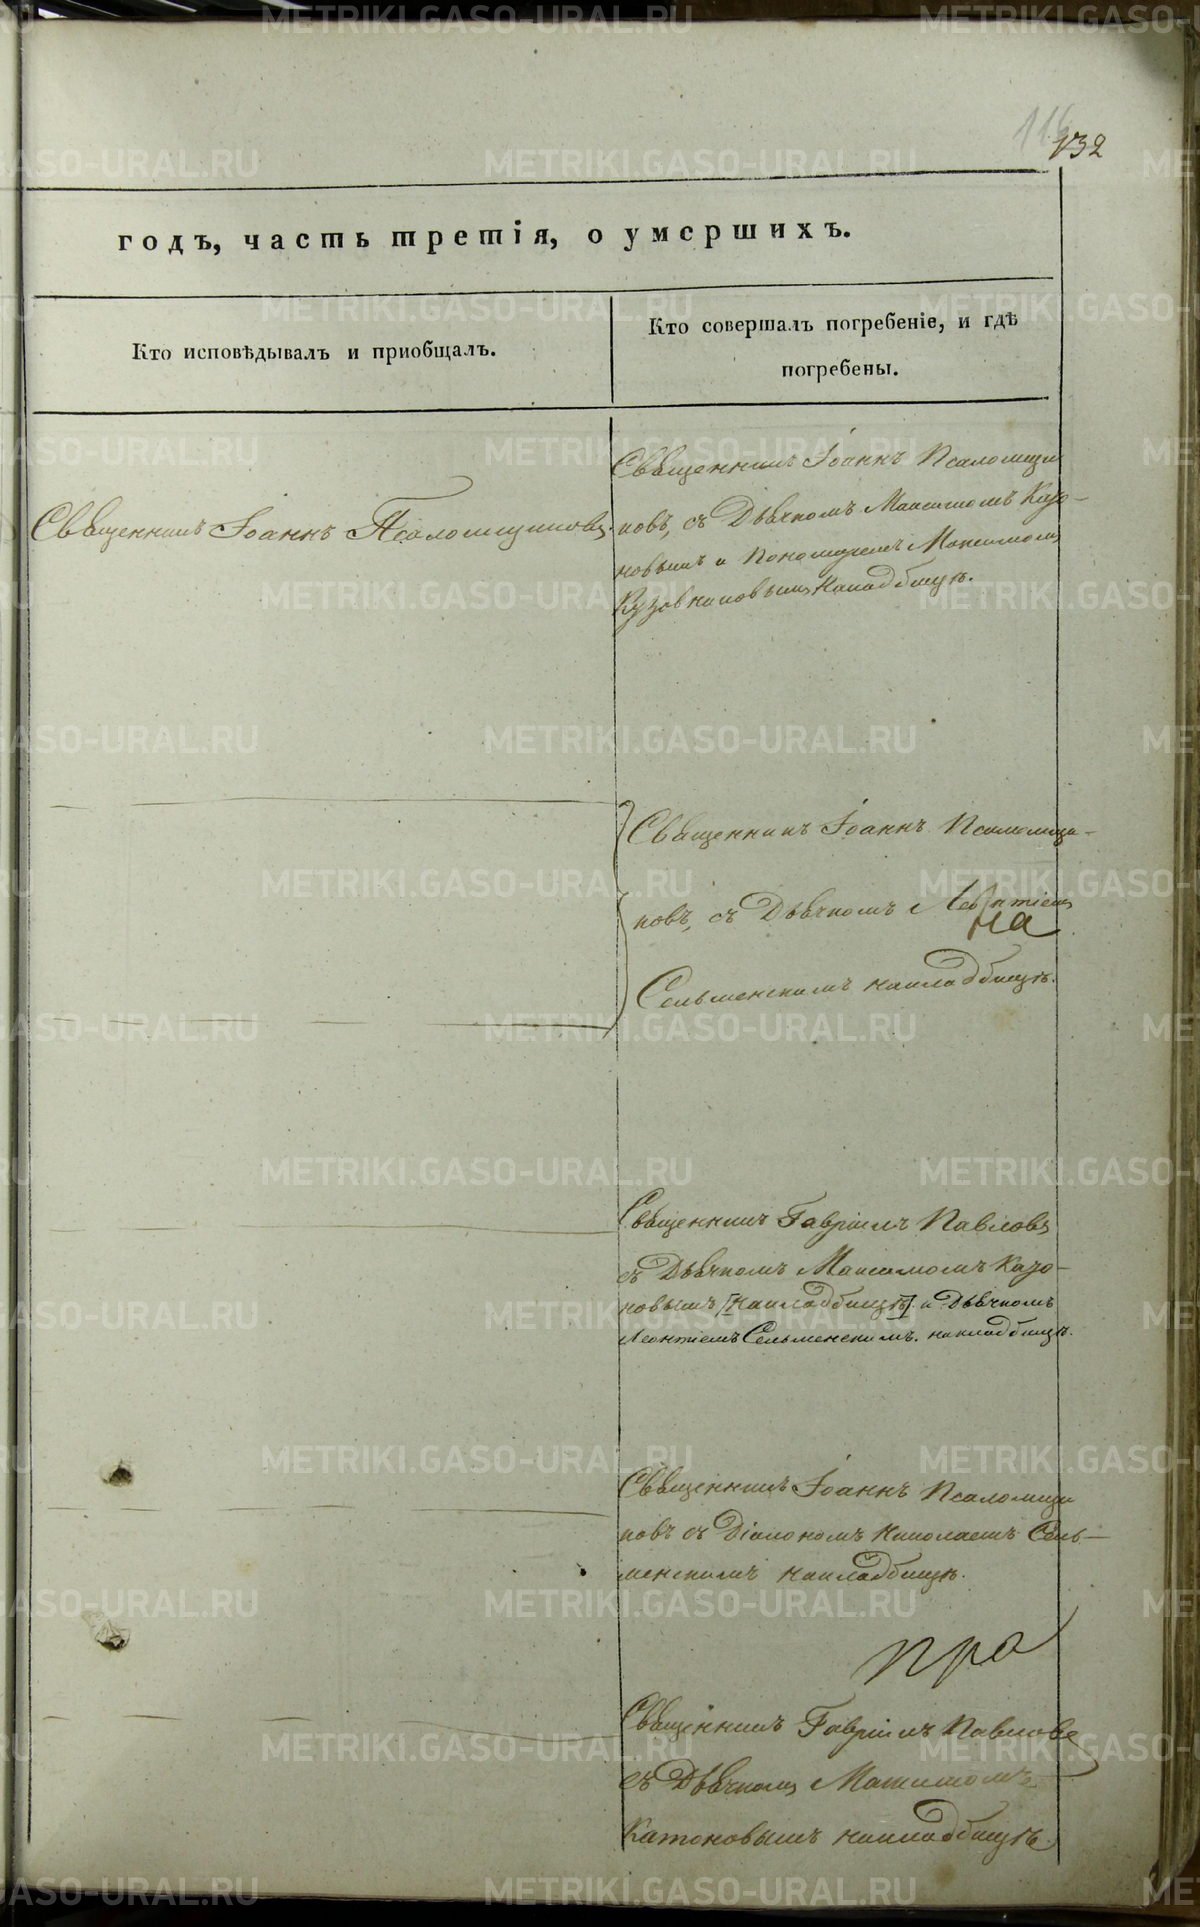 132
годъ, часть третія, о умершихъ.
Кто исповѣдывалъ и приобщалъ.
Кто совершалъ погребеніе, и гдѣ
погребены.
Священникъ Іоаннъ Псаломщиковъ.
Священникъ Іоаннъ Псаломщи
ковъ, съ Дьячкомъ Максимомъ Казо-
новымъ и Пономаремъ Максимомъ
Кузовниковымъ На кладбищѣ.
Священникъ Іоаннъ Псаломщи-
ковъ, съ Дьячкомъ Леонтіемъ
на
Сельменскимъ на кладбищѣ.
Священникъ Гавріилъ Павловъ
съ Дьячкомъ Максимомъ Казо-
новымъ [на кладбищѣ] и Дьячкомъ
Леонтіемъ Сельменскимъ. на кладбищѣ.
Священникъ Іоаннъ Псаломщи
ковъ съ Діакономъ Николаемъ Сель-
менскимъ на кладбищѣ.
Священникъ Гавріилъ Павловъ
съ Дьячкомъ Максимомъ
на кладбищѣ.
METRIKI.GASO-URAL.RU